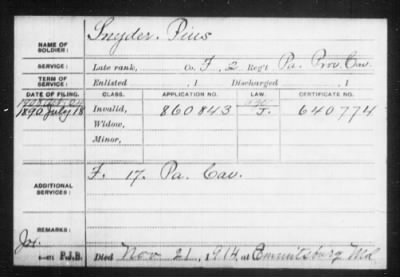 Snyder, Pius
NAME OF SOLDIER:
SERVICE: Late rank, Co. F, 2 Reg't Pa. Prov. Cav.
TERM OF SERVICE: Enlisted , 1 Discharged , 1
DATE OF FILING. CLASS. APPLICATION NO. LAW. CERTIFICATE NO.
1890 July 18 Invalid, 860843 J. 640774
Widow,
Minor,
ADDITIONAL SERVICES: F. 17. Pa. Cav.
REMARKS:
F.J.B. Died Nov 21, 1914, at Emmitsburg Md